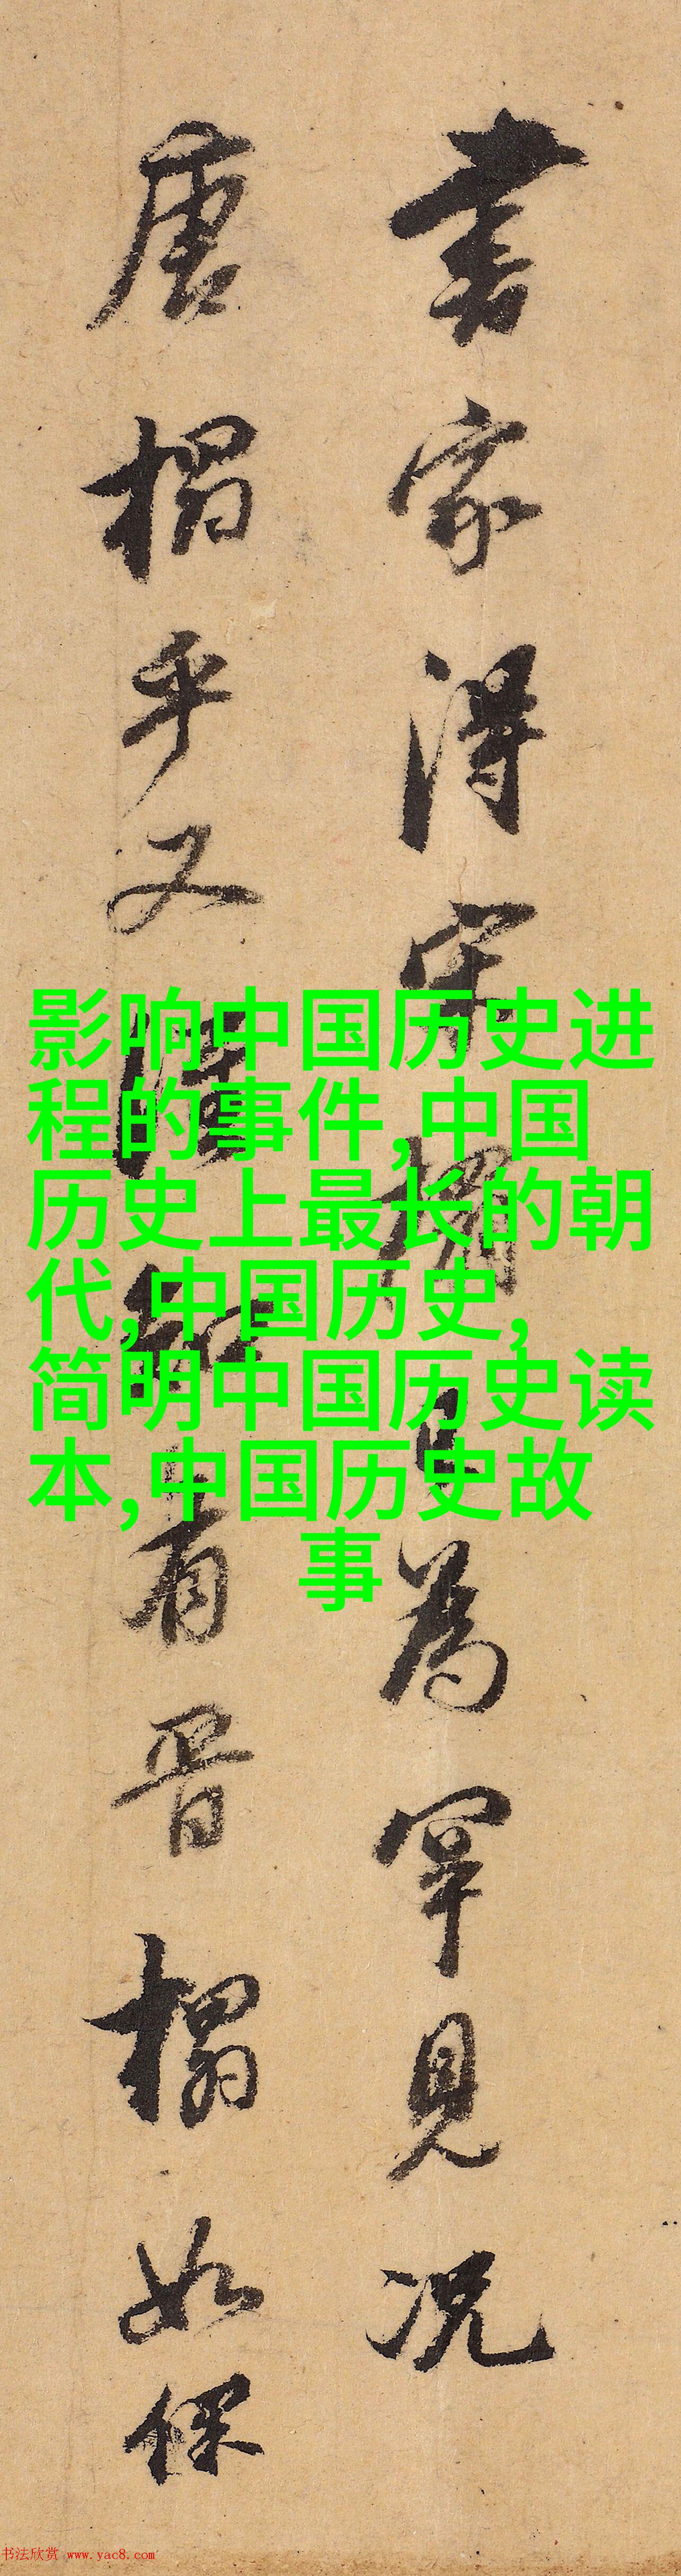 書家得宋搨已為罕見況
唐搨乎又
知有晋搨如保
影响中国历史进
程的事件,中国
历史上最长的朝
代,中国历史,
简明中国历史读
本,中国历史故
事
书法欣赏 www.yac8.com